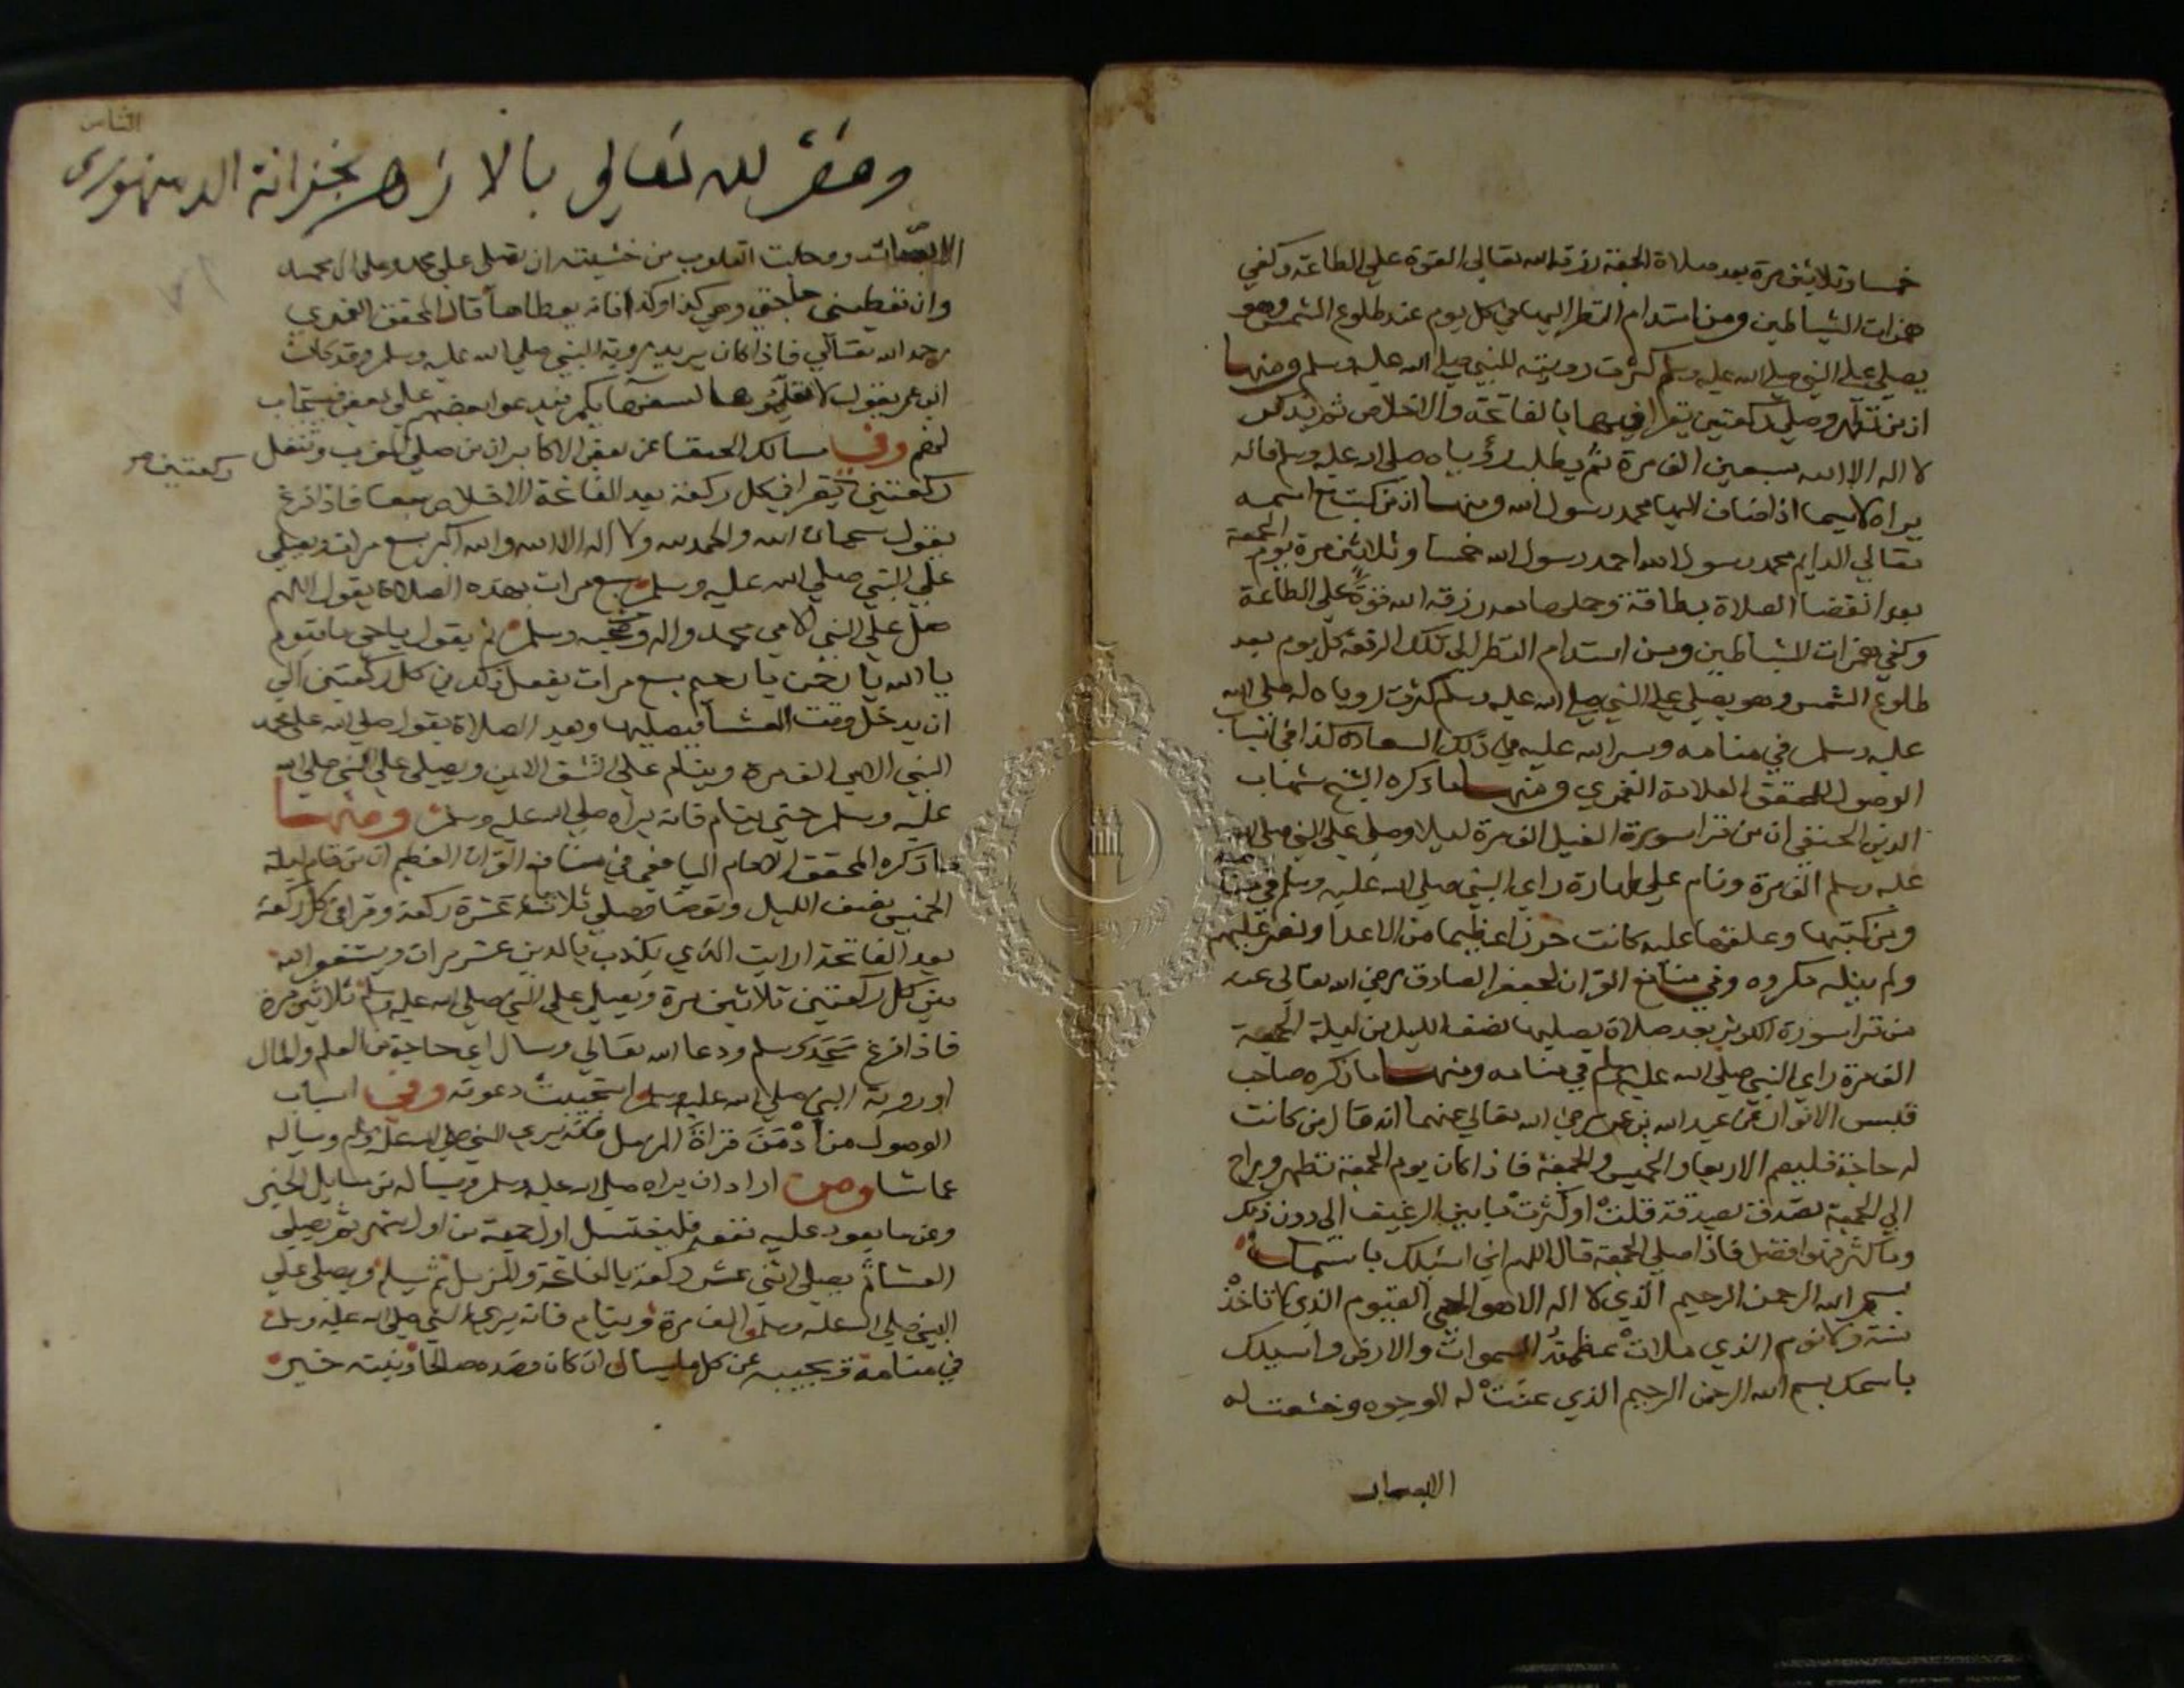 خمسا وثلاثين مرة بعد صلاة الجمعة رزقه الله تعالى القوة علي الطاعة وكفي
همزات الشياطين ومن استدام النظر اليها في كل يوم عند طلوع الشمس وهو
يصلي علي النبي صلي الله عليه وسلم كثرت رويته للنبي صلي الله عليه وسلم ومنها
ان من تطهر وصلي ركعتين يقرا فيهما بالفاتحة والاخلاص ثم يذكر
لا اله الا الله سبعين الف مرة ثم يطلب رؤياه صلي الله عليه وسلم فانه
يراه لاسيما اذا ضاف اليها محمد رسول الله ومنها ان من كتب مع اسمه
تعالي الدايم محمد رسول الله احمد رسول الله خمسا وثلاثين مرة يوم الجمعة
بعد انقضا الصلاة ببطاقة وحملها معه رزقه الله قوة علي الطاعة
وكفي همزات الشياطين ومن استدام النظر الي تلك الرقعة كل يوم بعد
طلوع الشمس وهو يصلي علي النبي صلي الله عليه وسلم كثرت روياه له صلي الله
عليه وسلم في منامه ويسر الله عليه في ذلك السعادة كذا في اسباب
الوصول للمحقق العلامة الغمري ومنها ما ذكره الشيخ شهاب
الدين الحنفي ان من قرا سورة الفيل الف مرة ليلا وصلي علي النبي صلي الله
عليه وسلم الف مرة ونام علي طهارة راي النبي صلي الله عليه وسلم في منامه
ومن كتبها وعلقها عليه كانت حرزا عظيما من الاعدا ونصر عليهم
ولم ينله مكروه وفي منافع القران لجعفر الصادق رضي الله تعالى عنه
من قرا سورة الكوثر بعد صلاة يصليها نصف الليل من ليلة الجمعة
الف مرة راي النبي صلي الله عليه وسلم في منامه ومنها ما ذكره صاحب
قبس الانوار عن عبد الله بن عمر رضي الله تعالي عنهما انه قال من كانت
له حاجة فليصم الاربعا والخميس والجمعة فاذا كان يوم الجمعة تطهر وراح
الي الجمعة تصدق بصدقة قلت او كثرت ما بين الرغيف الي دون ذلك
وما كثر فهو افضل فاذا صلي الجمعة قال اللهم اني اسئلك باسمك
بسم الله الرحمن الرحيم الذي لا اله الا هو الحي القيوم الذي لا تاخذه
سنة ولا نوم الذي ملات عظمته السموات والارض واسيلك
باسمك بسم الله الرحمن الرحيم الذي عنت له الوجوه وخشعت له
الابصار
وقف لله تعالي بالازهر بخزانة الدمنهوري
الابصار ووجلت القلوب من خشيته ان تصلي علي محمد وعلي ال محمد
وان تعطيني حاجتي وهي كذا وكذا فانه يعطاها قال المحقق الغمري
رحمه الله تعالي فاذا كان يريد روية النبي صلي الله عليه وسلم وقد كان
ابن عمر يقول لا تعلموها لسفهايكم فيدعوا بعضهم علي بعض فيستجاب
لهم وفي مسالك الحنفا عن بعض الاكابر ان من صلي المغرب وتنفل
ركعتين صح
ركعتين يقرا في كل ركعة بعد الفاتحة الاخلاص سبعا فاذا فرغ
يقول سبحان الله والحمد لله ولا اله الا الله والله اكبر سبع مرات ويصلي
علي النبي صلي الله عليه وسلم سبع مرات بهذه الصلاة يقول اللهم
صل علي النبي الامي محمد واله وصحبه وسلم ثم يقول يا حي يا قيوم
يا الله يا رحمن يا رحيم سبع مرات يفعل ذلك في كل ركعتين الي
ان يدخل وقت العشا فيصليها وبعد الصلاة يقول صلي الله علي محمد
النبي الامي الف مرة وينام علي الشق الايمن ويصلي علي النبي صلي الله
عليه وسلم حتي ينام فانه يراه صلي الله عليه وسلم ومنها
ما ذكره المحقق الامام اليافعي في منافع القران العظيم ان من قام ليلة
الخميس نصف الليل وتوضا وصلي ثلاثة عشرة ركعة وقرا في كل ركعة
بعد الفاتحة ارايت الذي يكذب بالدين عشر مرات ويستغفر الله
بين كل ركعتين ثلاثين مرة ويصلي علي النبي صلي الله عليه وسلم ثلاثين مرة
فاذا فرغ سجد وسلم ودعا الله تعالي وسال اي حاجة من العلم والمال
او روية النبي صلي الله عليه وسلم استجيبت دعوته وفي اسباب
الوصول من ادمن قراة المزمل فانه يري النبي صلي الله عليه وسلم ويساله
عما شا ومن اراد ان يراه صلي الله عليه وسلم ويساله من مسايل الخير
وعن ما يعود عليه نفعه فليغتسل اول جمعة من اول الشهر ثم يصلي
العشا ثم يصلي اثني عشر ركعة بالفاتحة والمزمل ثم يسلم ويصلي علي
النبي صلي الله عليه وسلم الف مرة وينام فانه يري النبي صلي الله عليه وسلم
في منامه ويجيبه عن كل ما يسال ان كان قصده صالحا ونيته خير